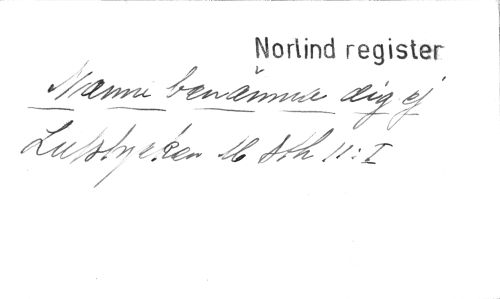 Norlind register
Namn benämna dig ej
Lutstycken 16 Sth 11:I